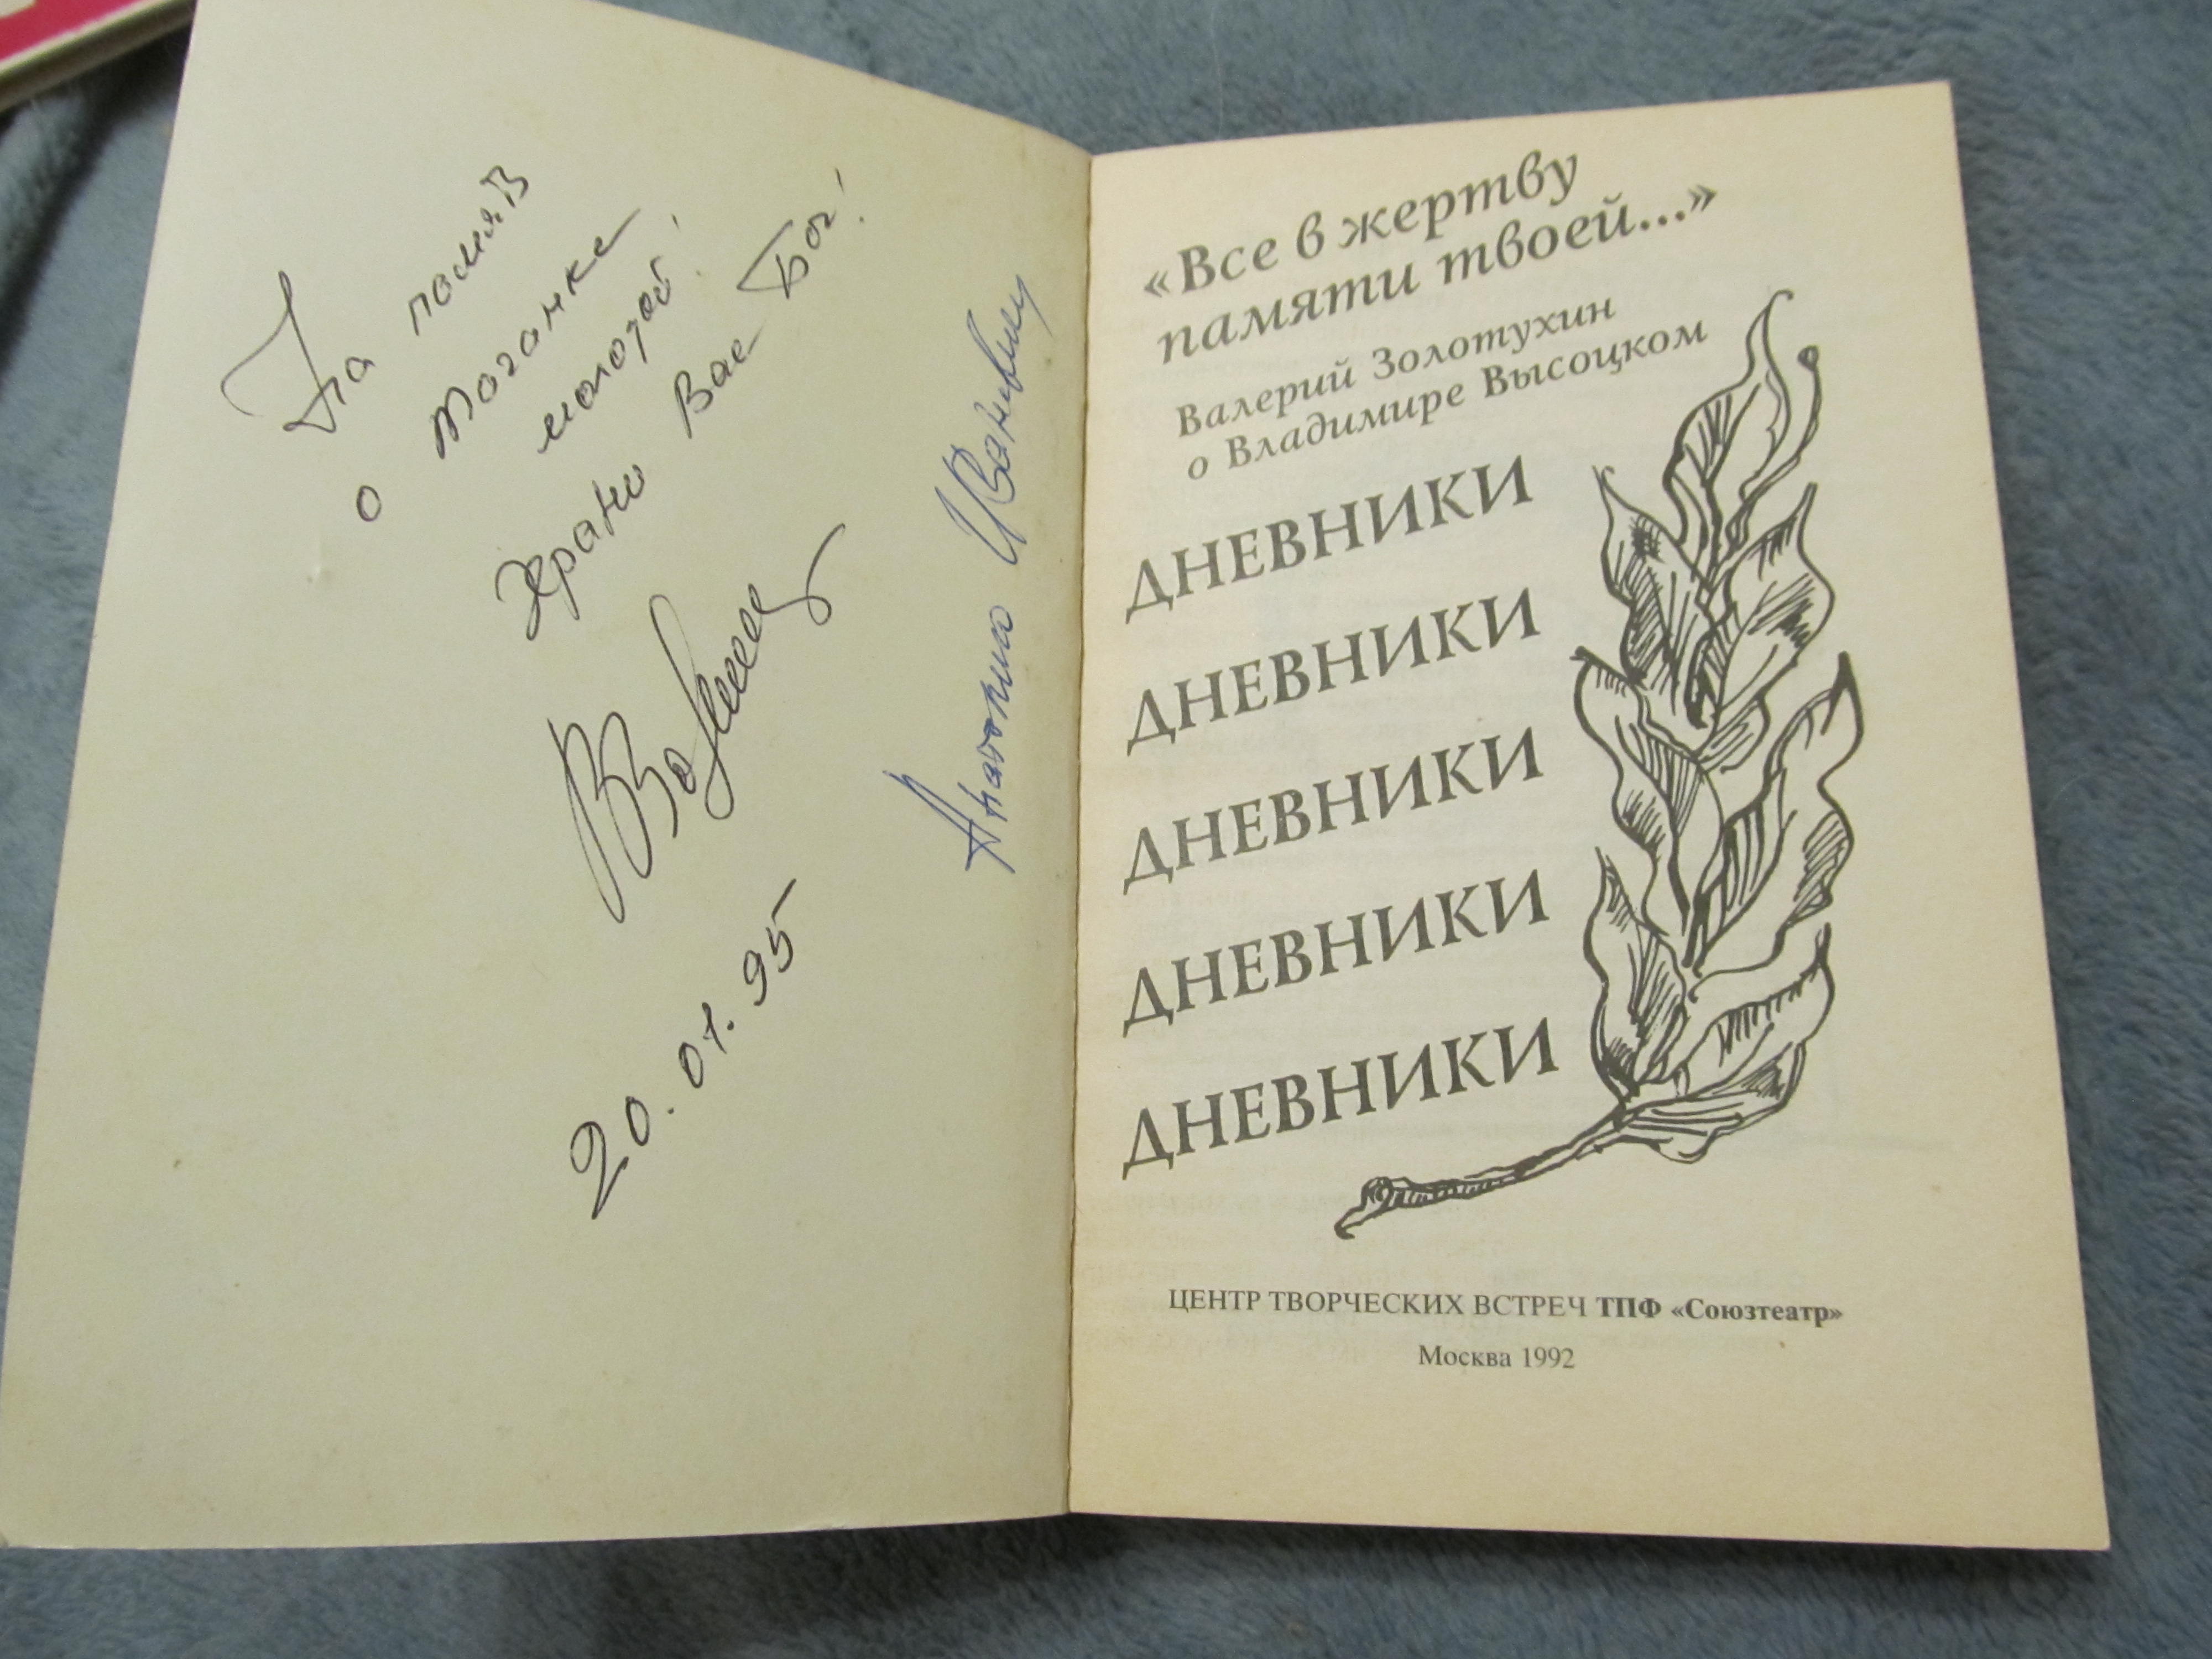 На память
о Таганке
молодой!
Храни Вас Бог!
20.07.95
Анатолию Ивановичу
«Все в жертву
памяти твоей...»
Валерий Золотухин
о Владимире Высоцком
ДНЕВНИКИ
ДНЕВНИКИ
ДНЕВНИКИ
ДНЕВНИКИ
ДНЕВНИКИ
ЦЕНТР ТВОРЧЕСКИХ ВСТРЕЧ ТПФ «Союзтеатр»
Москва 1992